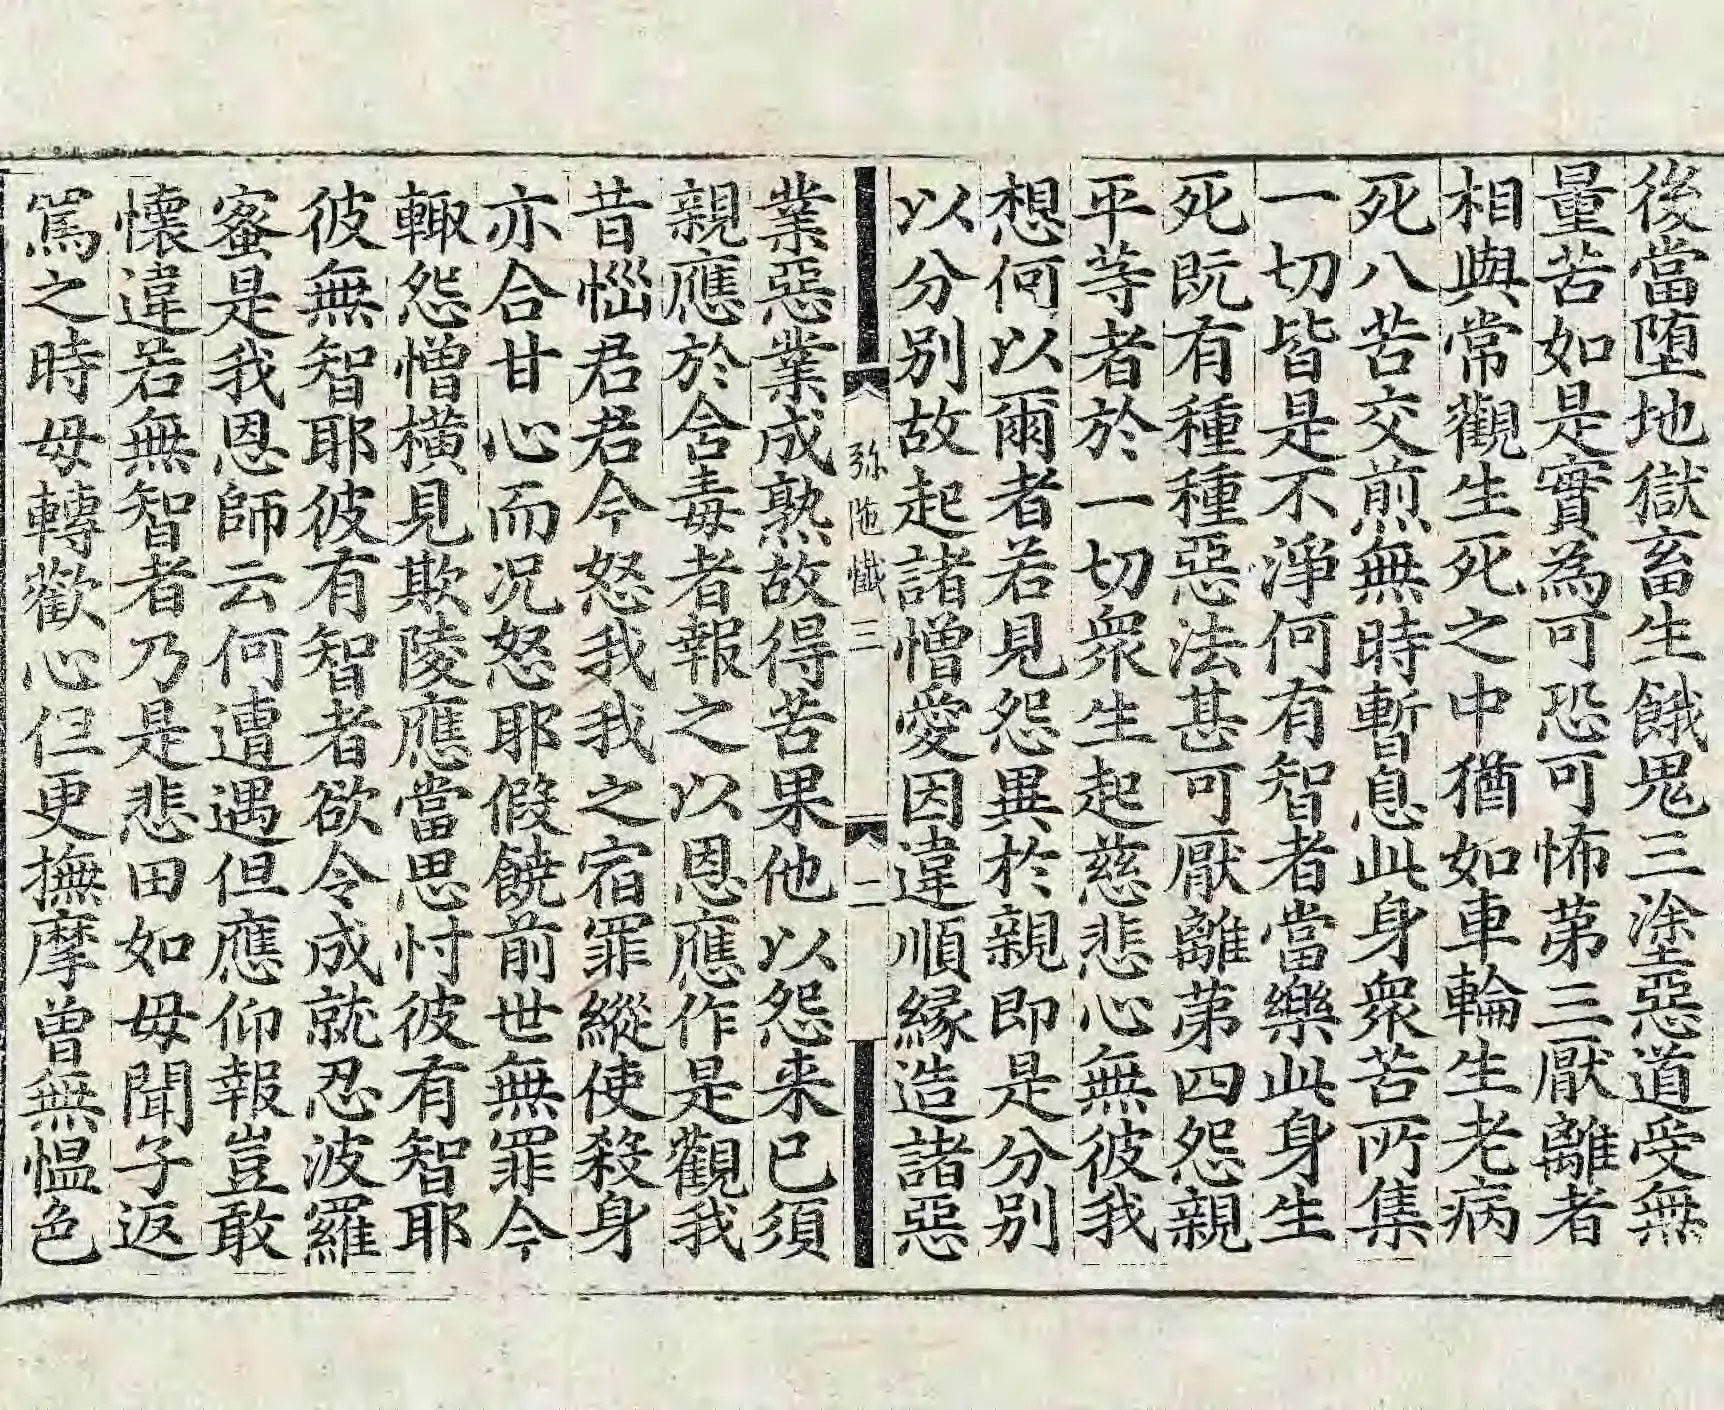 後當堕地獄畜生餓鬼三塗惡道受無
量苦如是實為可恐可怖第三厭離者
相與常觀生死之中猶如車輪生老病
死八苦交煎無時暫息此身衆苦所集
一切皆是不淨何有智者當樂此身生
死既有種種惡法甚可厭離第四怨親
平等者於一切衆生起慈悲心無彼我
想何以爾者若見怨異於親即是分別
以分別故起諸憎愛因違順緣造諸惡
弥陁懺三 二
業惡業成熟故得苦果他以怨来已須
親應於含毒者報之以恩應作是觀我
昔惱君君今怒我我之宿罪縱使殺身
亦合甘心而况怒耶假饒前世無罪今
輙怨憎横見欺陵應當思忖彼有智耶
彼無智耶彼有智者欲令成就忍波羅
蜜是我恩師云何遭遇但應仰報豈敢
懐違若無智者乃是悲田如母聞子返
罵之時母轉歡心但更撫摩曾無愠色